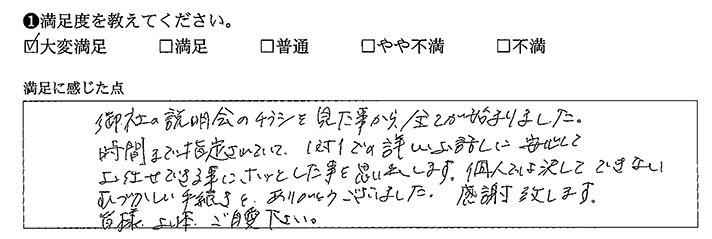 ❶満足度を教えてください。
☑大変満足 □満足 □普通 □やや不満 □不満
満足に感じた点
御社の説明会のチラシを見た事から全てが始まりました。
時間まで指定されていて、1対1での詳しいお話しに安心して
お任せできる事にホッとした事を思い出します。個人では決してできない
むづかしい手続きを、ありがとうございました。感謝致します。
皆様、お体、ご自愛下さい。